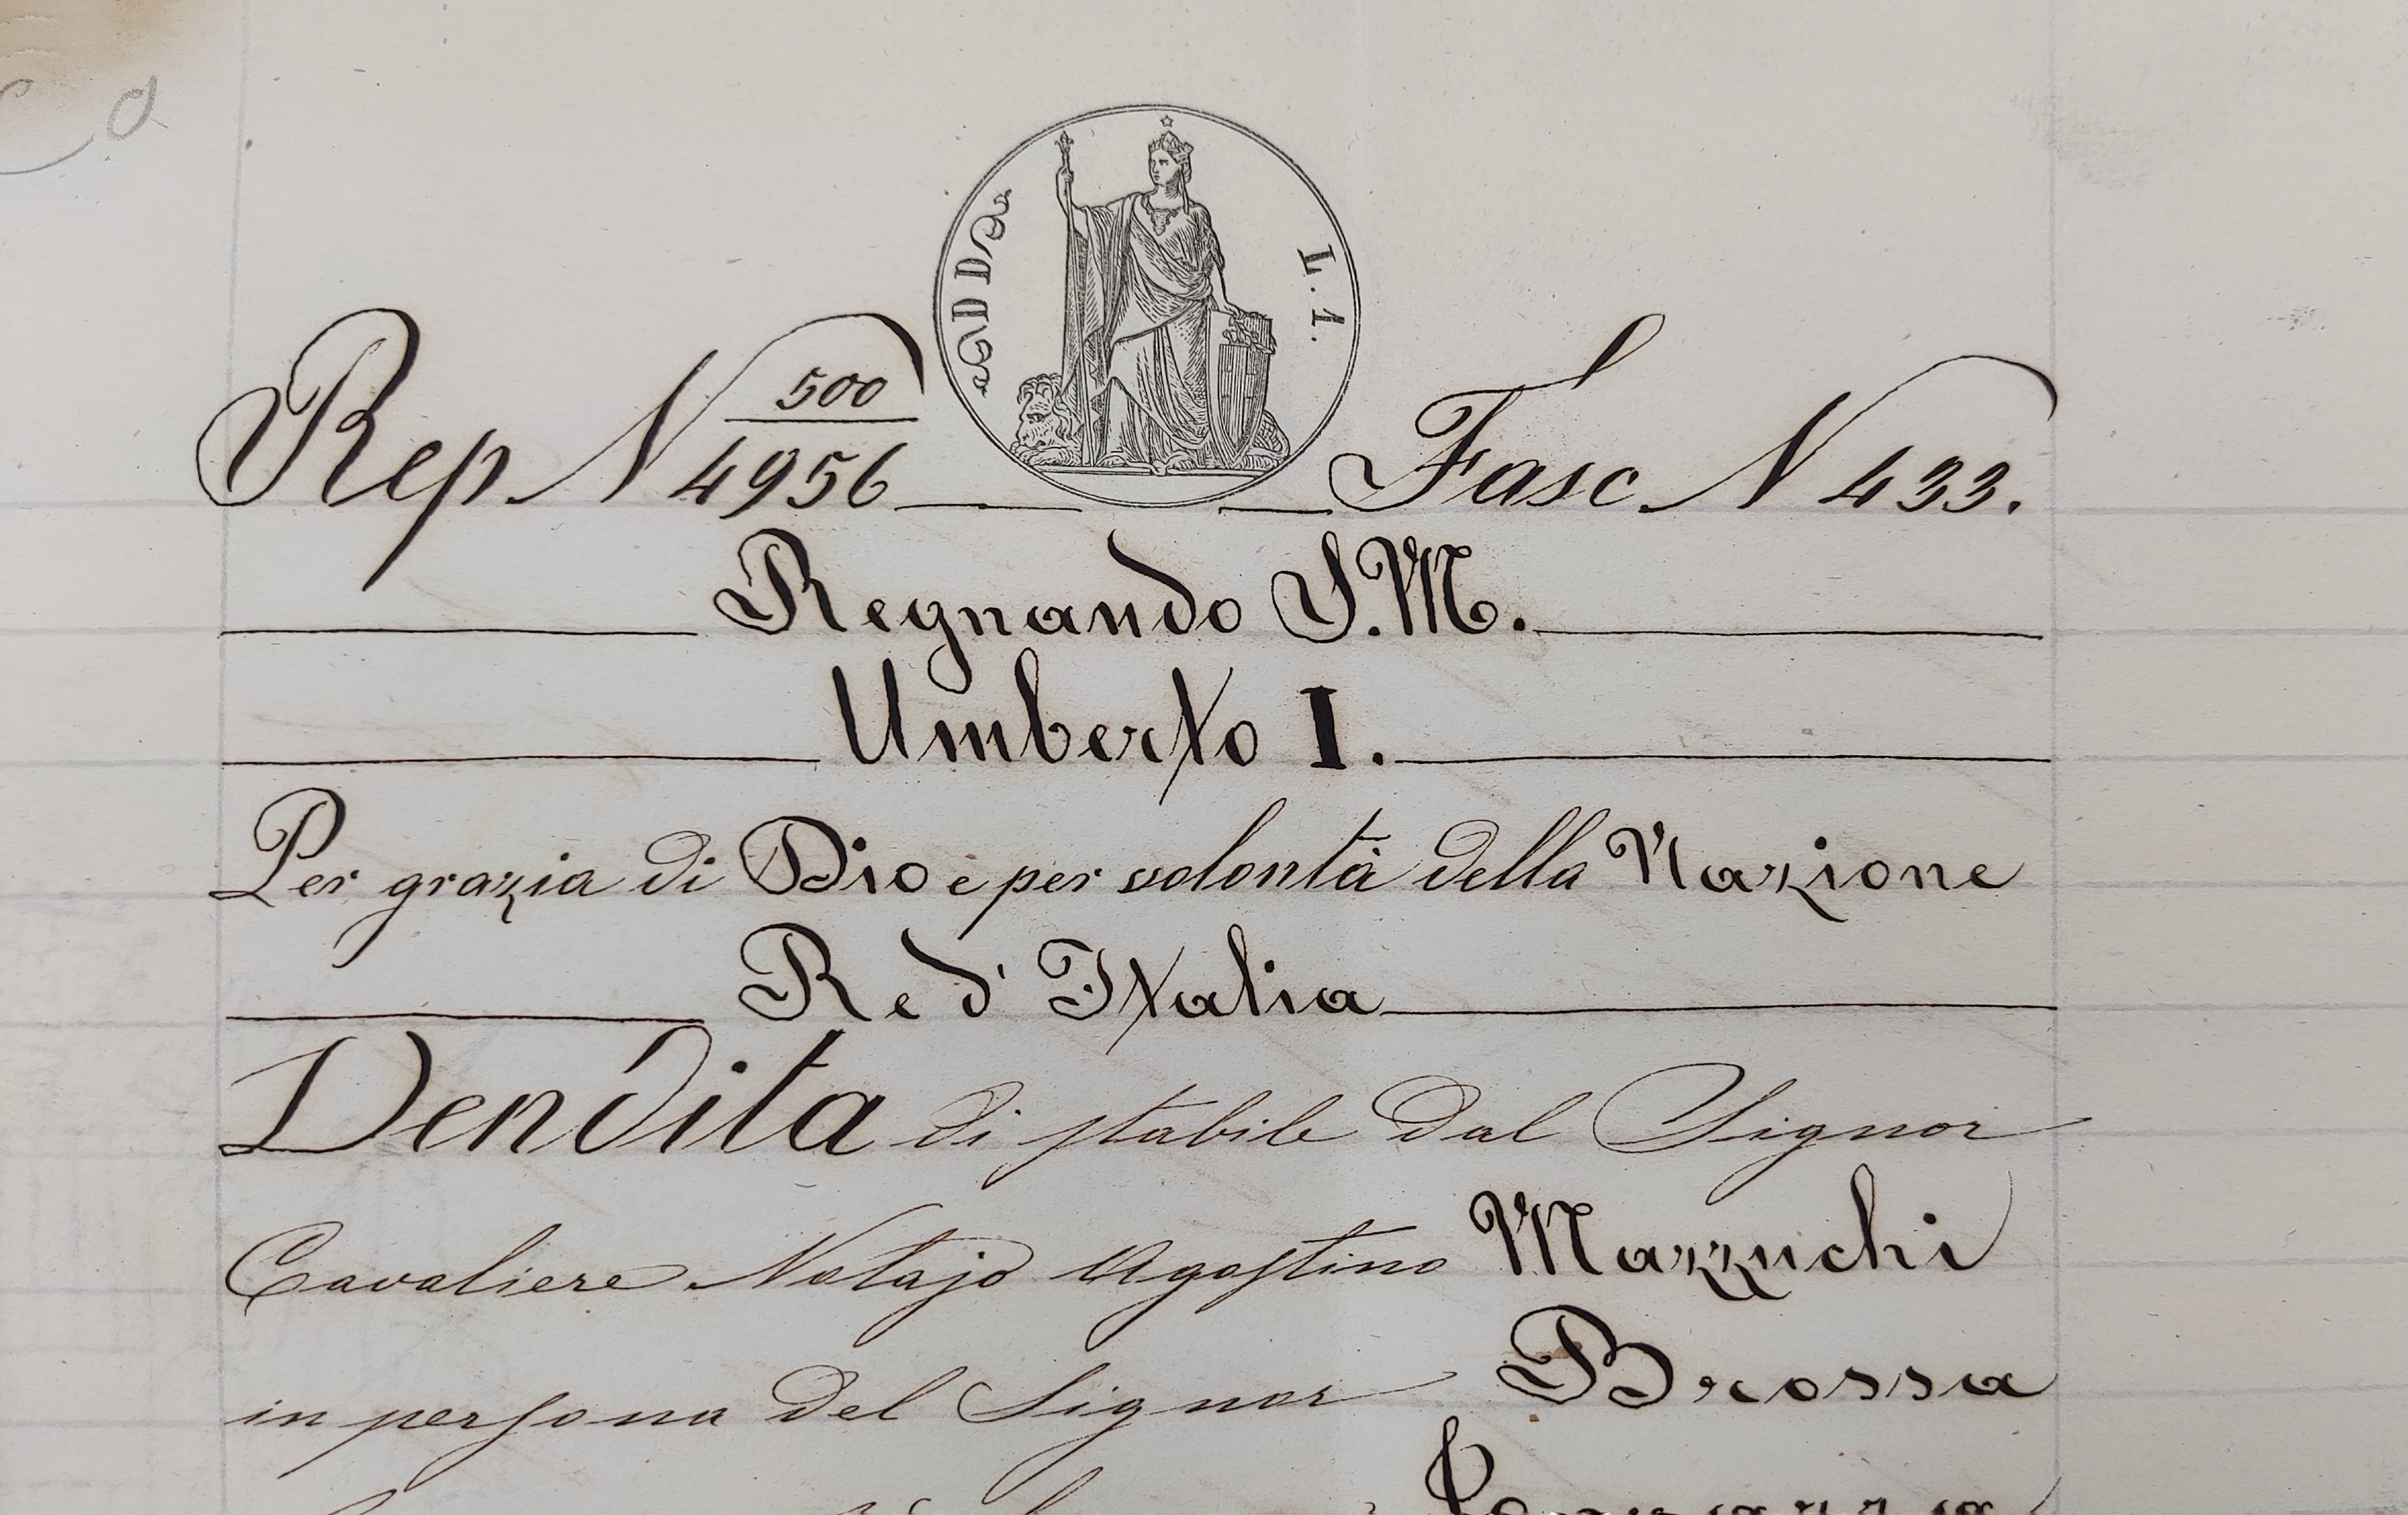 L. 1.
Rep. N 500/4956 Fasc. N 433.
Regnando S.M.
Umberto I.
Per grazia di Dio e per volontà della Nazione
Re d'Italia
Vendita di stabile dal Signor
Cavaliere Notajo Agostino Mazzuchi
in persona del Signor Brossa